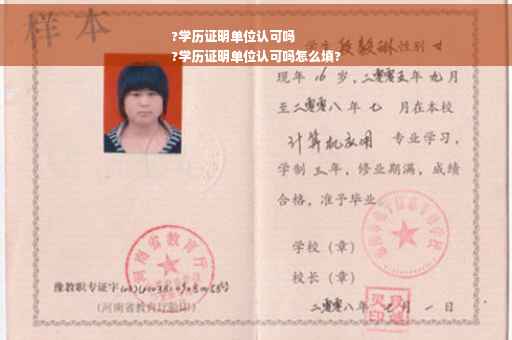 样本
?学历证明单位认可吗
?学历证明单位认可吗怎么填?
学生段毅琳性别女
现年16岁,二零零五年九月
至二零零八年七月在本校
计算机应用 专业学习,
学制三年,修业期满,成绩
合格,准予毕业
学校(章)
校长(章)
二零零八年七月一日
河南省教育厅
豫教职专证字
(河南省教育厅验印)